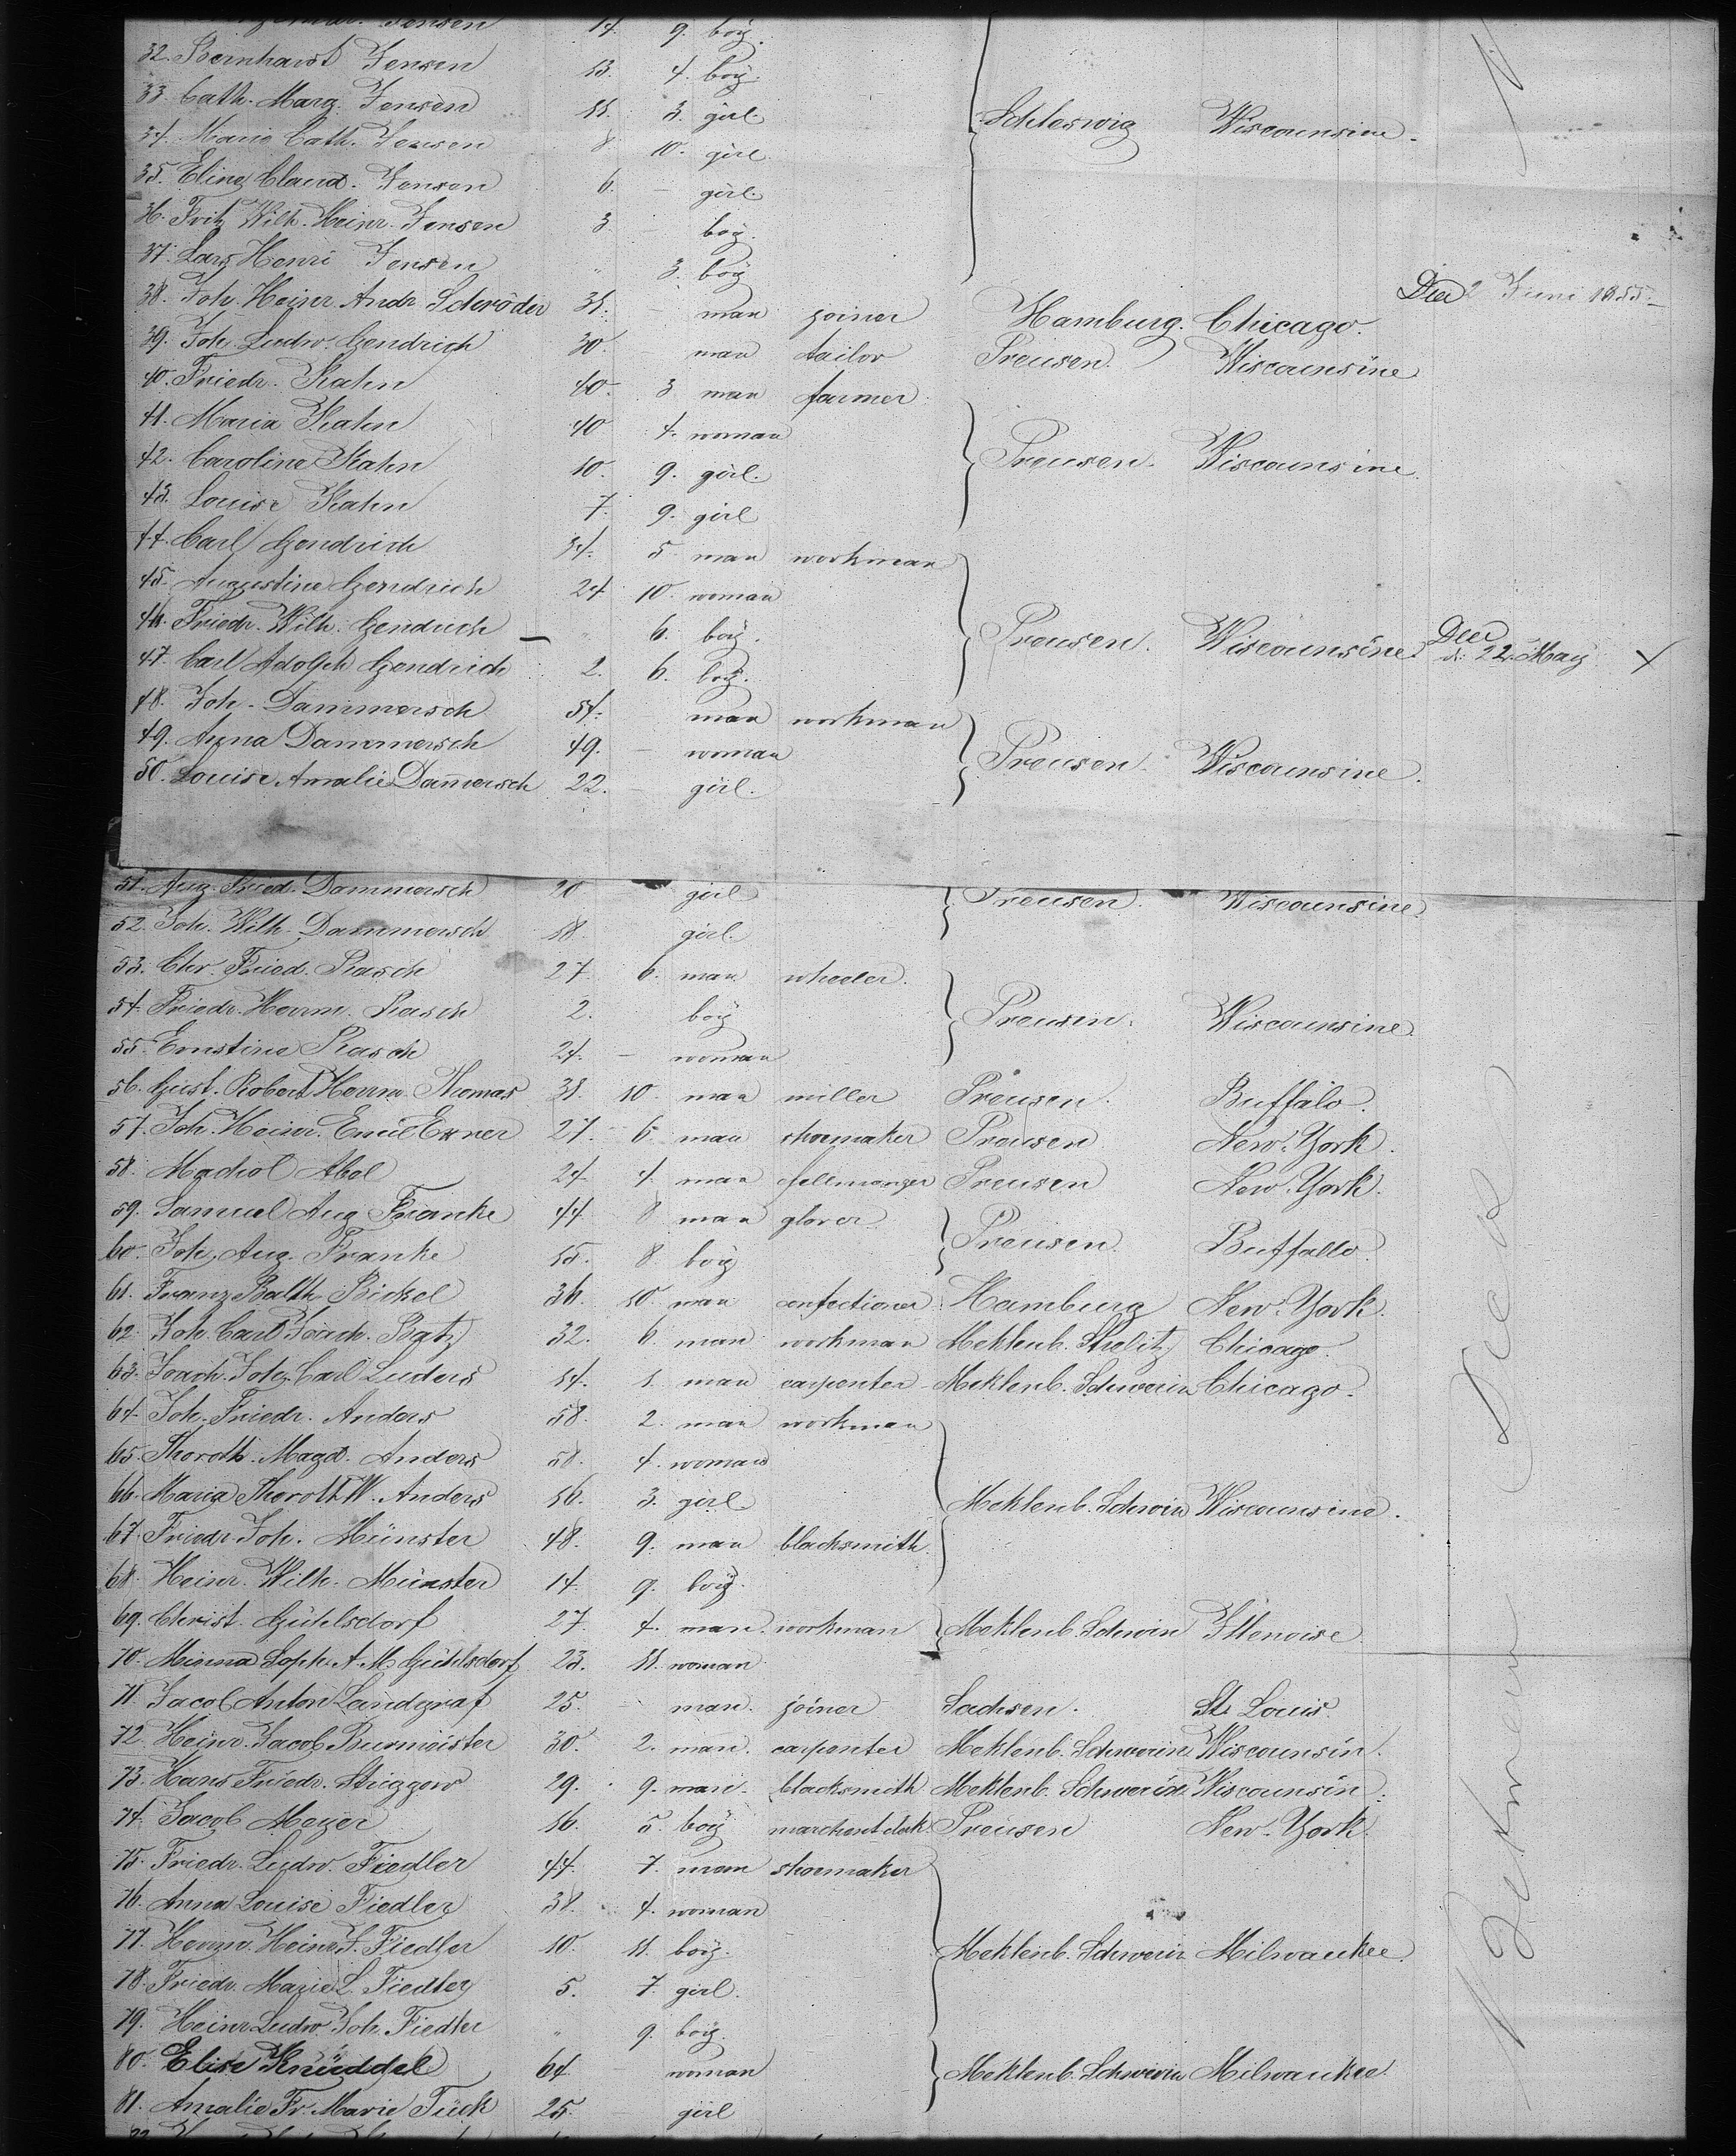 Jensen 14. 9. boy.
32. Bernhardt Jensen 13. 4. boy.
33. Cath. Marg. Jensen 11. 3. girl. Schleswig Wiscounsine.
34. Marie Cath. Jensen 8 10. girl
35. Eline Claud. Jensen 6. – girl.
36. Fritz Wilh. Heinr. Jensen 3. boy.
37. Lars Henri Jensen " 3. boy
38. Joh. Heinr. Andr. Schröder 31. – man joiner Hamburg. Chicago. Died 2 Juni 1855
39. Joh. Ludw. Gendrich 30. man tailor Preusen. Wiscounsine
40. Friedr. Kahn 40. 3 man farmer.
41. Maria Kahn 40 4. woman Preusen. Wiscounsine.
42. Caroline Kahn 10. 9. girl.
43. Louise Kahn 7. 9. girl
44. Carl Gendrich 34. 5. man workman
45. Augustine Gendrich 24 10. woman
46. Friedr. Wilh. Gendrich " 6. boy. Preusen. Wiscounsine. Died d. 22. May X
47. Carl Adolph Gendrich 2. 6. boy.
48. Joh. Dammersch 54. – man workman
49. Anna Dammersch 49. – woman Preusen. Wiscounsine.
50. Louise Amalie Dam̄ersch 22. – girl.
51. Aug. Fried. Dammersch 20 girl Preusen. Wiscounsine.
52. Joh. Wilh. Dammersch 18. girl.
53. Chr. Fried. Rasch 27. 6. man wheeler.
54. Friedr. Herrm. Rasch 2. boy Preusen. Wiscounsine.
55. Ernstine Rasch 24. – woman
56. Gust. Robert Herrm. Thomas 31. 10. man miller Preusen. Buffalo.
57. Joh. Heinr. Emil Exner 27. 6. man shoemaker Preusen New-York.
58. Machol Abel 24. 4. man fellmonger Preusen New-York.
59. Samuel Aug. Franke 44. 8 man glover Preusen. Buffallo.
60. Joh. Aug. Franke 15. 8 boy
61. Franz Balth. Bickel 36. 10. man confectioner Hamburg New-York.
62. Joh. Carl Joach. Batz 32. 6. man workman Meklenb. Strelitz Chicago.
63. Joach. Joh. Carl Luders 54. 1. man carpenter Meklenb. Schwerin Chicago.
64. Joh. Friedr. Anders 58. 2. man workman
65. Thoroth. Magd. Anders 58. 4. woman
66. Maria Thoroth W. Anders 16. 3. girl Meklenb. Schwrin Wiscounsine.
67. Friedr. Joh. Münster 48. 9. man blacksmith.
68. Heinr. Wilh. Münster 14 9. boy.
69. Christ. Gühlsdorf 27. 4. man. workman Meklenb. Schwrin Illenoise
70. Minna Soph. A. M. Gühlsdorf 23. 11. woman
71. Jacob Anton Landgraf 25. – man. joiner Sachsen. St. Louis.
72. Heinr. Jacob Burmeister 30. 2. man. carpenter Meklenb. Schwerin Wiscounsin.
73. Hans Friedr. Striggow 29. 9. man. blacksmith Meklenb. Schwerin Wiscounsin.
74. Jacob Meyer 16. 5. boy marchent clerk. Preusen New-York.
75. Friedr. Ludw. Fiedler 44. 7. man shoemaker
76. Anna Louise Fiedler 38. 4. woman
77. Herrm. Heinr. F. Fiedler 10. 11. boy. Meklenb. Schwerin Milwaukee.
78. Friedr. Marie L. Fiedler 5. 7. girl.
79. Heinr. Ludw. Joh. Fiedler " 9. boy.
80. Elise Knüddel 64. woman Meklenb. Schwerin Milwaukee.
81. Amalie Fr. Marie Tück 25. girl